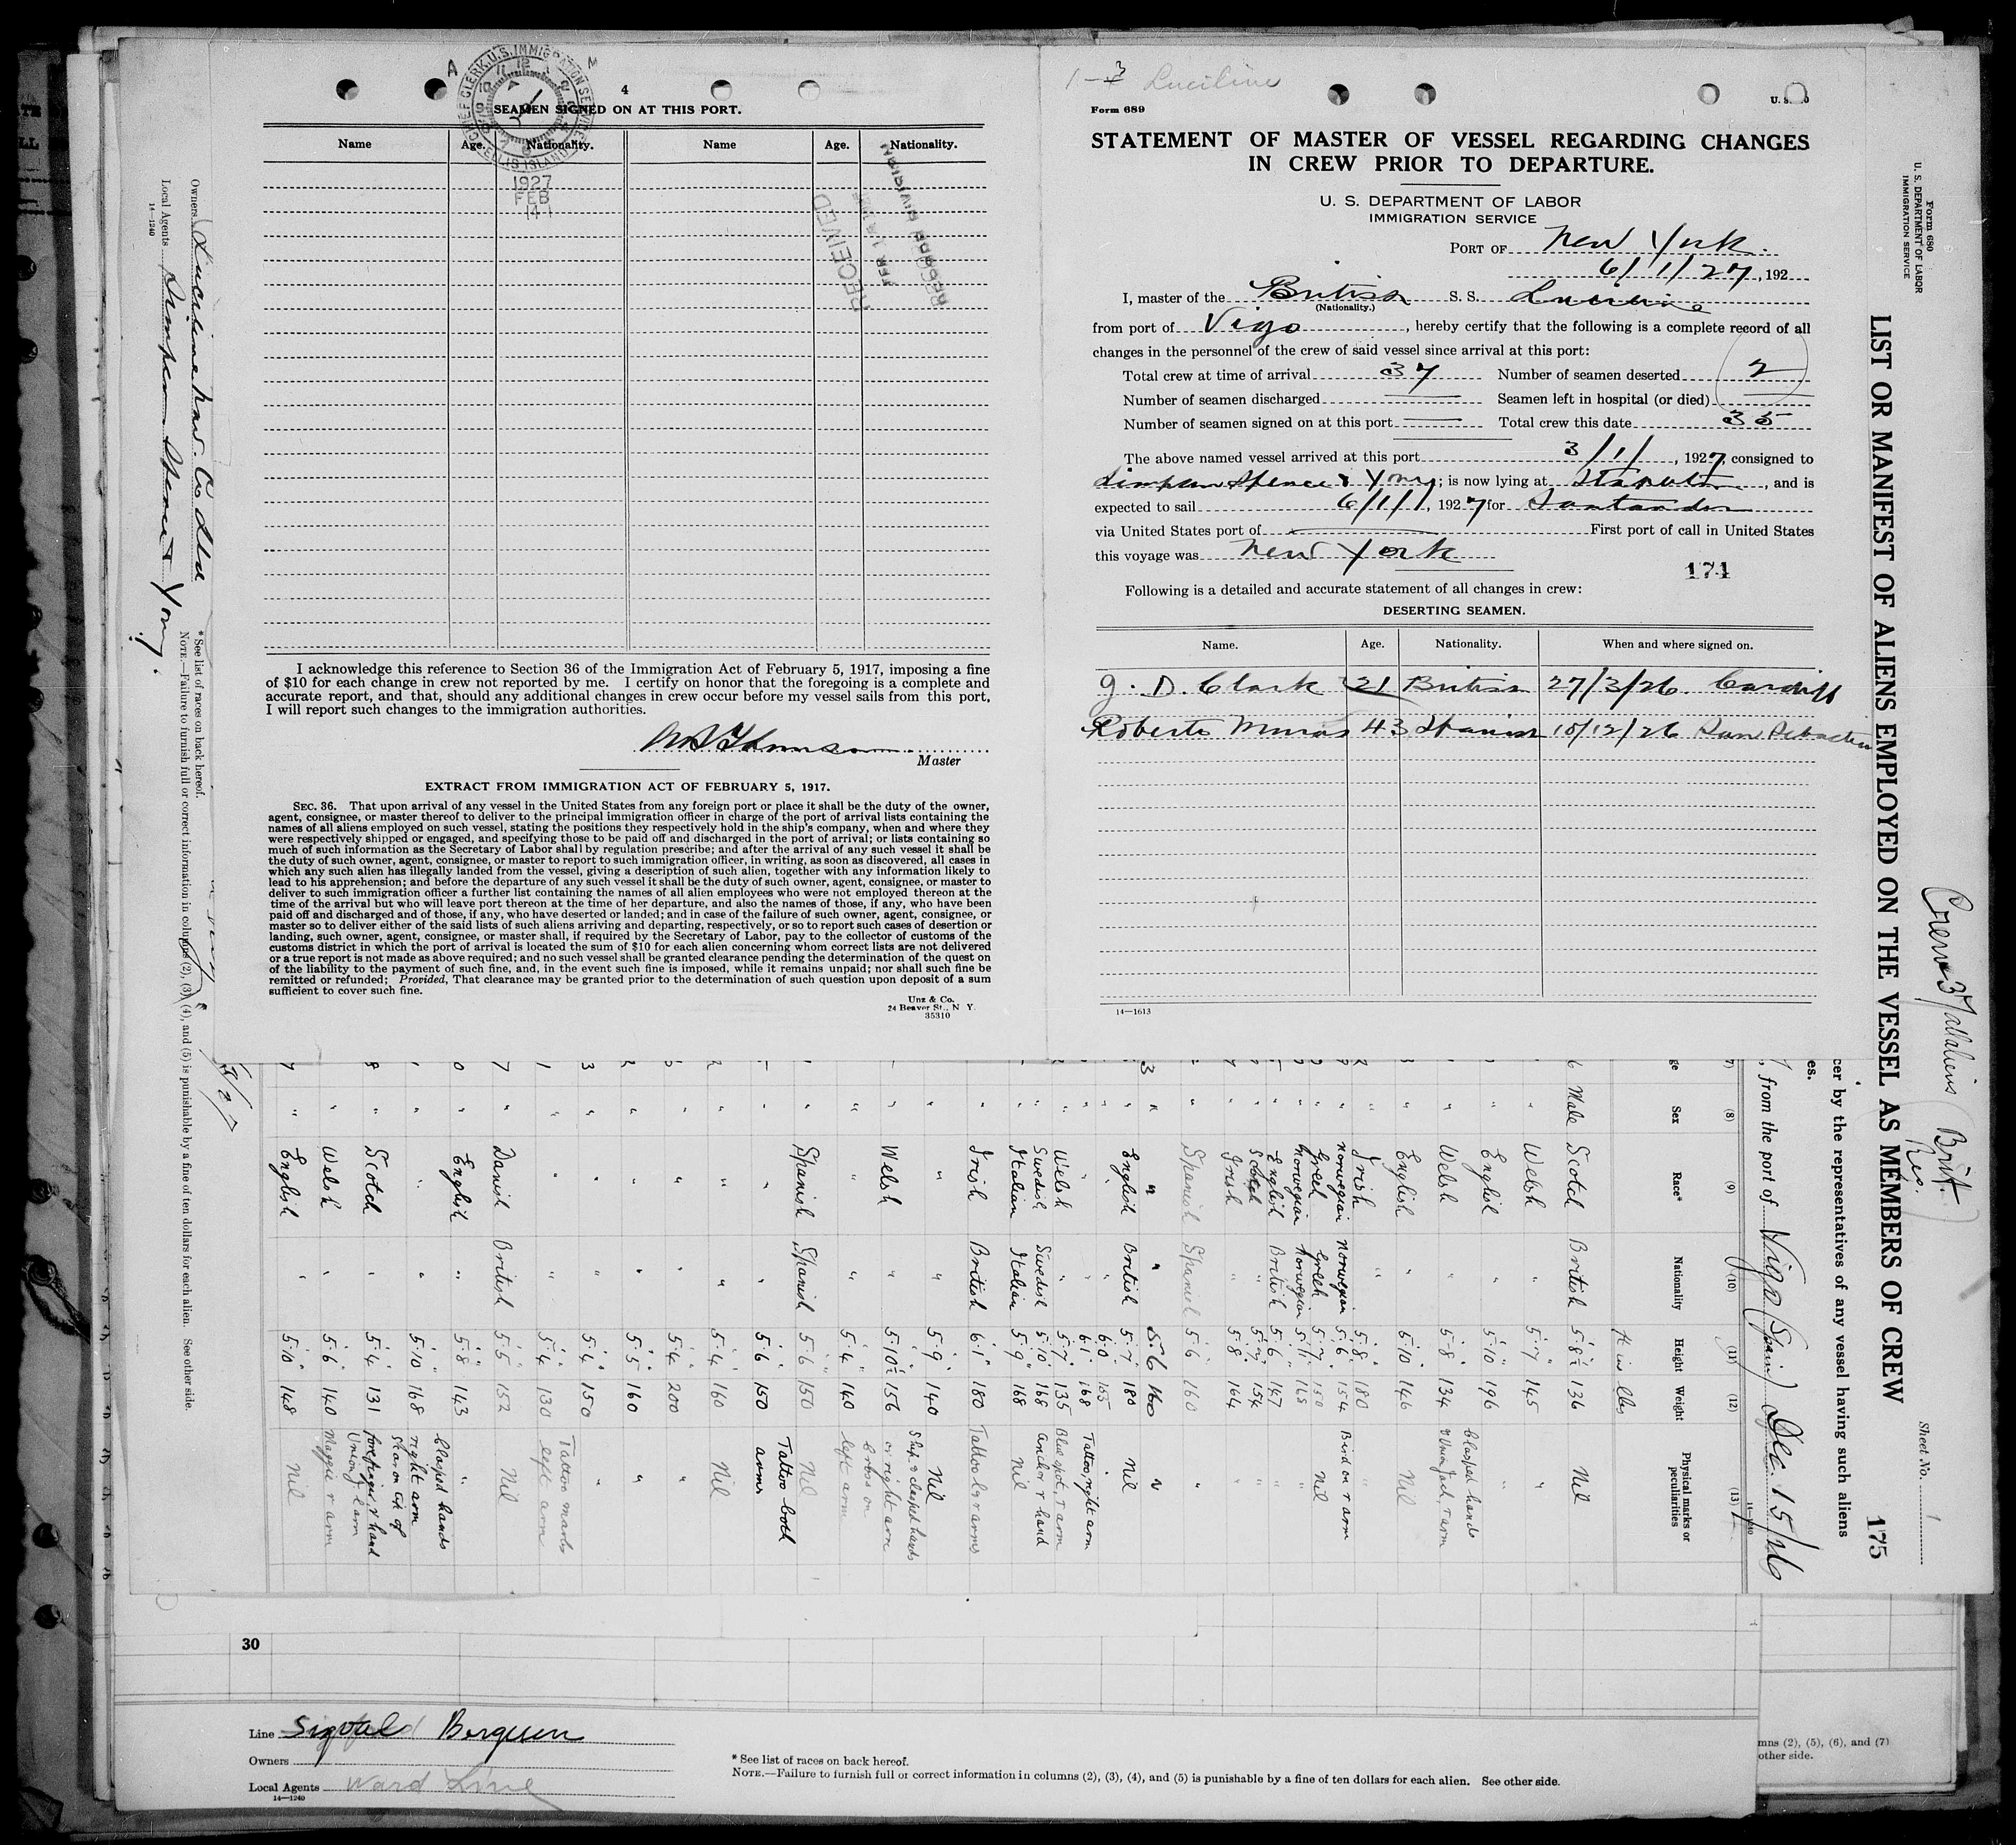 4
SEAMEN SIGNED ON AT THIS PORT.
CHIEF CLERK, U.S. IMMIGRATION SERVICE
ELLIS ISLAND
Name Age. Nationality. Name Age. Nationality.
1927
FEB
14
RECEIVED
RECORD DIVISION
I acknowledge this reference to Section 36 of the Immigration Act of February 5, 1917, imposing a fine
of $10 for each change in crew not reported by me. I certify on honor that the foregoing is a complete and
accurate report, and that, should any additional changes in crew occur before my vessel sails from this port,
I will report such changes to the immigration authorities.
Master
EXTRACT FROM IMMIGRATION ACT OF FEBRUARY 5, 1917.
SEC. 36. That upon arrival of any vessel in the United States from any foreign port or place it shall be the duty of the owner,
agent, consignee, or master thereof to deliver to the principal immigration officer in charge of the port of arrival lists containing the
names of all aliens employed on such vessel, stating the positions they respectively hold in the ship's company, when and where they
were respectively shipped or engaged, and specifying those to be paid off and discharged in the port of arrival; or lists containing so
much of such information as the Secretary of Labor shall by regulation prescribe; and after the arrival of any such vessel it shall be
the duty of such owner, agent, consignee, or master to report to such immigration officer, in writing, as soon as discovered, all cases in
which any such alien has illegally landed from the vessel, giving a description of such alien, together with any information likely to
lead to his apprehension; and before the departure of any such vessel it shall be the duty of such owner, agent, consignee, or master to
deliver to such immigration officer a further list containing the names of all alien employees who were not employed thereon at the
time of the arrival but who will leave port thereon at the time of her departure, and also the names of those, if any, who have been
paid off and discharged and of those, if any, who have deserted or landed; and in case of the failure of such owner, agent, consignee, or
master so to deliver either of the said lists of such aliens arriving and departing, respectively, or so to report such cases of desertion or
landing, such owner, agent, consignee, or master shall, if required by the Secretary of Labor, pay to the collector of customs of the
customs district in which the port of arrival is located the sum of $10 for each alien concerning whom correct lists are not delivered
or a true report is not made as above required; and no such vessel shall be granted clearance pending the determination of the quest on
of the liability to the payment of such fine, and, in the event such fine is imposed, while it remains unpaid; nor shall such fine be
remitted or refunded; Provided, That clearance may be granted prior to the determination of such question upon deposit of a sum
sufficient to cover such fine.
Unz & Co.
24 Beaver St., N Y.
35310
1-3 Luciline
Form 689
STATEMENT OF MASTER OF VESSEL REGARDING CHANGES
IN CREW PRIOR TO DEPARTURE.
U. S. DEPARTMENT OF LABOR
IMMIGRATION SERVICE
PORT OF New York.
6/1/27, 192
I, master of the British S. S. Luciline
(Nationality.)
from port of Vigo, hereby certify that the following is a complete record of all
changes in the personnel of the crew of said vessel since arrival at this port:
Total crew at time of arrival 37 Number of seamen deserted 2
Number of seamen discharged Seamen left in hospital (or died)
Number of seamen signed on at this port Total crew this date 35
The above named vessel arrived at this port 3/1/, 1927, consigned to
Simpson Spence & Yong; is now lying at Stapleton, and is
expected to sail 6/1/, 1927 for Santander
via United States port of First port of call in United States
this voyage was New York
174
Following is a detailed and accurate statement of all changes in crew:
DESERTING SEAMEN.
Name. Age. Nationality. When and where signed on.
G. D. Clark 21 British 27/3/26 Cardiff
Roberto 43 Spanish 10/12/26 San Sebastian
14—1613
Form 680
U. S. DEPARTMENT OF LABOR
IMMIGRATION SERVICE
LIST OR MANIFEST OF ALIENS EMPLOYED ON THE VESSEL AS MEMBERS OF CREW
175
Sheet No. 1
Crew 37 all aliens (Brit.
cer by the representatives of any vessel having such aliens
es.
, from the port of Vigo (Spain) Dec. 15/26
(8) (9) (10) (11) (12) (13)
Sex Race* Nationality Height Weight Physical marks or peculiarities
ft ins lbs
6 Male Scotch British 5·8½ 136 Nil
" Welsh " 5·7 145 "
" English " 5·10 196 "
" Welsh " 5·8 134 clasped hands
" English " 5·10 146 Nil
" Irish " 5·8 180 "
Norwegian Norwegian 5·6 154 Bird on r arm
Greek Greek 5·7 150 Nil
Norwegian Norwegian 5·11 165 "
English British 5·6 147 "
Scotch " 5·7 154 "
Irish " 5·8 164 "
Spanish Spanish 5·6 160 "
3 " " " 5·6 160 "
English British 5·7 180 Nil
" " 6·0 155 "
" " 6·1 168 Tattoo, right arm
Welsh " 5·7 135 Blue spot, r arm
Swedish Swedish 5·10 168 anchor r hand
Italian Italian 5·9 168 Nil
Irish British 6·1 180 Tattoo l & r arms
" " 5·9 140 Nil
Welsh " 5·10½ 156 Ship & clasped hands
on right arm
" " 5·4 140 left arm
Spanish Spanish 5·6 150 Nil
" " 5·6 150 Tattoo both
arms
" " 5·4 160 Nil
" " 5·4 200 "
" " 5·5 160 "
" " 5·4 150 "
" " 5·4 130 Tattoo marks
left arm
Danish British 5·5 152 Nil
English " 5·8 143 "
" " 5·10 168 clasped hands
right arm
Scotch " 5·4 131 forefinger r hand
Welsh " 5·6 140 Maggie r arm
English " 5·10 148 Nil
Owners Luciline Nav. Co Ltd
Local Agents Simpson Spence & Yong.
14—1240
* See list of races on back hereof.
NOTE.—Failure to furnish full or correct information in columns (2), (3), (4), and (5) is punishable by a fine of ten dollars for each alien. See other side.
30
Line Sigval Bergesen
Owners
Local Agents Ward Line
14—1240
* See list of races on back hereof.
NOTE.—Failure to furnish full or correct information in columns (2), (3), (4), and (5) is punishable by a fine of ten dollars for each alien. See other side.
mns (2), (5), (6), and (7)
other side.